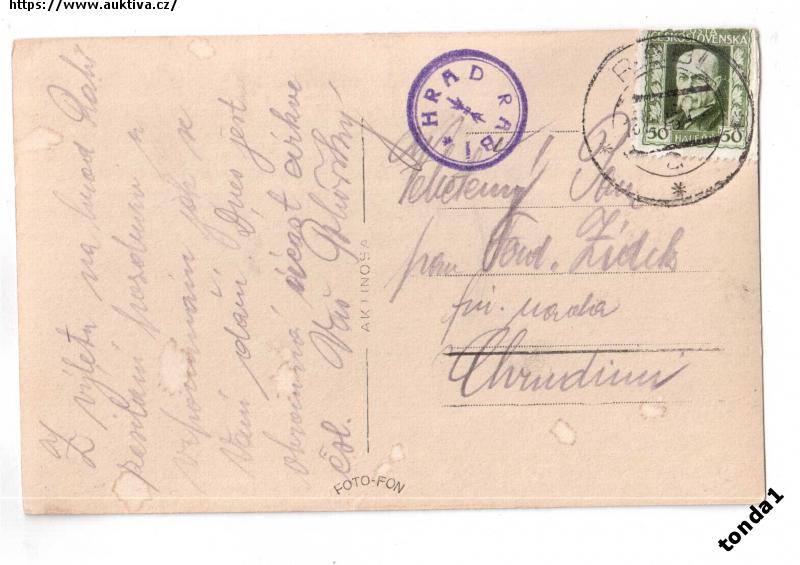 https://www.auktiva.cz/
Z výletu na hrad Rabí
posílám pozdrav a
vzpomínám jak se
Vám daří. Dnes jest
ohromná účast církve
čsl. Váš
HRAD RABÍ *
AKTINOSA
FOTO-FON
ČESKOSLOVENSKA
50 HALÉŘŮ 50
RABÍ
* *
Velectěný Pan
pan Ferd. Žídek
Chrudimi
tonda1